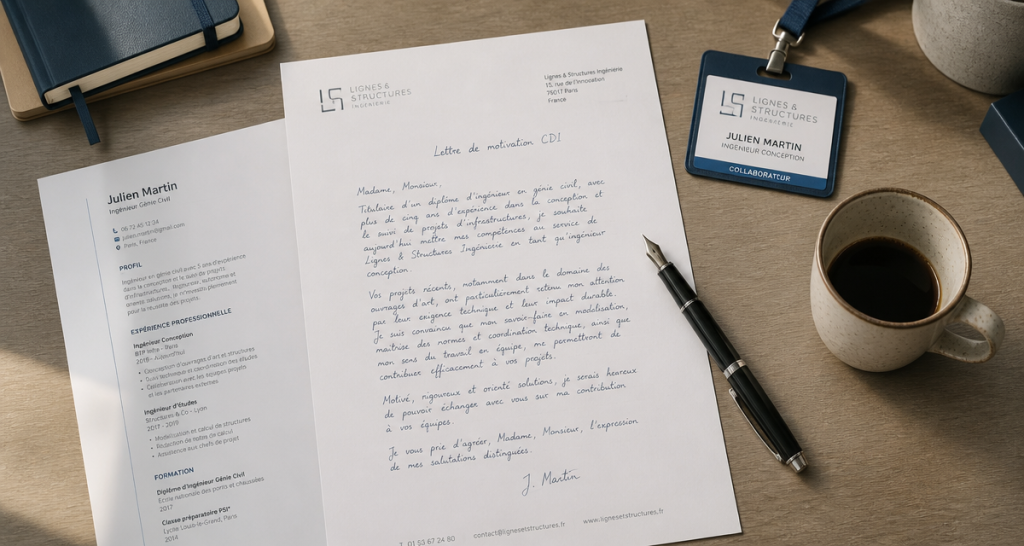 Julien Martin
Ingénieur Génie Civil
06 72 45 12 04
julien.martin@gmail.com
Paris, France
PROFIL
Ingénieur en génie civil avec 5 ans d'expérience
dans la conception et le suivi de projets
d'infrastructures. Rigoureux, autonome et
orienté solutions, je
pour la réussite des projets.
EXPÉRIENCE PROFESSIONNELLE
Ingénieur Conception
BTP - Paris
2019 - Aujourd'hui
Conception d'ouvrages d'art et structures
Suivi technique et coordination des études
Collaboration avec les équipes projets
et les partenaires externes
Ingénieur d'études
Structures & Co - Lyon
2017 - 2019
Modélisation et calcul de structures
Rédaction de notes de calcul
Assistance aux chefs de projet
FORMATION
Diplôme d'Ingénieur Génie Civil
École nationale des ponts et chaussées
2017
Classe préparatoire PSI*
Lycée Louis-le-Grand, Paris
2014
LS LIGNES &
STRUCTURES
INGÉNIERIE
Lignes & Structures Ingénierie
15, rue de l'Innovation
75017 Paris
France
Lettre de motivation CDI
Madame, Monsieur,
Titulaire d'un diplôme d'ingénieur en génie civil, avec
plus de cinq ans d'expérience dans la conception et
le suivi de projets d'infrastructures, je souhaite
aujourd'hui mettre mes compétences au service de
Lignes & Structures Ingénierie en tant qu'ingénieur
conception.
Vos projets récents, notamment dans le domaine des
ouvrages d'art, ont particulièrement retenu mon attention
par leur exigence technique et leur impact durable.
Je suis convaincu que mon savoir-faire en modélisation,
maîtrise des normes et coordination technique, ainsi que
mon sens du travail en équipe, me permettront de
contribuer efficacement à vos projets.
Motivé, rigoureux et orienté solutions, je serais heureux
de pouvoir échanger avec vous sur ma contribution
à vos équipes.
Je vous prie d'agréer, Madame, Monsieur, l'expression
de mes salutations distinguées.
J. Martin
T. 01 53 67 24 80 contact@lignesetstructures.fr www.lignesetstructures.fr
LS LIGNES &
STRUCTURES
INGÉNIERIE
JULIEN MARTIN
INGÉNIEUR CONCEPTION
COLLABORATEUR